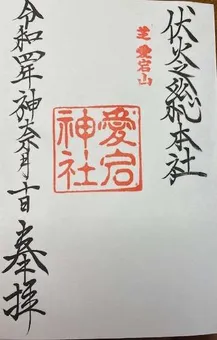 伏火之総本社
芝 愛宕山
愛宕
神社
令和四年神無月十日 奉拝